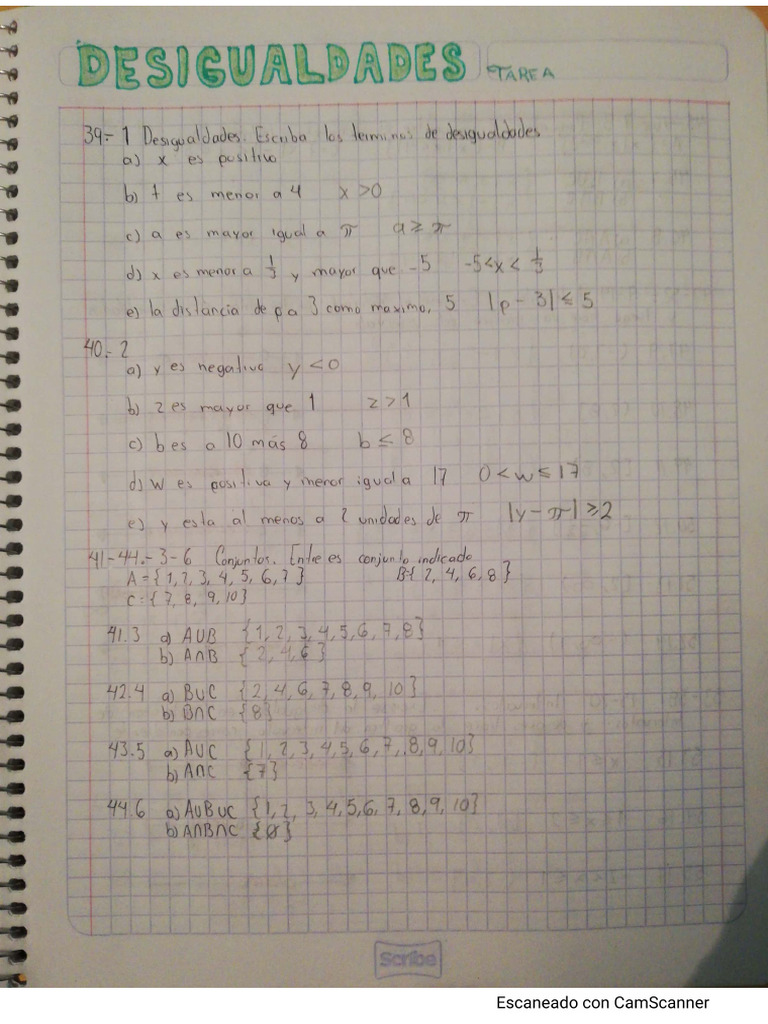 DESIGUALDADES TAREA
39.- 1 Desigualdades. Escriba los terminos de desigualdades
a) x es positivo
b) t es menor a 4 x > 0
c) a es mayor igual a π a ≥ π
d) x es menor a 1/3 y mayor que -5 -5 < x < 1/3
e) la distancia de p a 3 como maximo, 5 |p - 3| ≤ 5
40.- 2
a) y es negativo y < 0
b) z es mayor que 1 z > 1
c) b es a 10 más 8 b ≤ 8
d) W es positiva y menor igual a 17 0 < w ≤ 17
e) y esta al menos a 2 unidades de π |y - π| ≥ 2
41-44.- 3-6 Conjuntos. Entre es conjunto indicado
A = {1, 2, 3, 4, 5, 6, 7} B = {2, 4, 6, 8}
C = {7, 8, 9, 10}
41.3 a) A∪B {1, 2, 3, 4, 5, 6, 7, 8}
b) A∩B {2, 4, 6}
42.4 a) B∪C {2, 4, 6, 7, 8, 9, 10}
b) B∩C {8}
43.5 a) A∪C {1, 2, 3, 4, 5, 6, 7, 8, 9, 10}
b) A∩C {7}
44.6 a) A∪B∪C {1, 2, 3, 4, 5, 6, 7, 8, 9, 10}
b) A∩B∩C {Ø}
Scribe
Escaneado con CamScanner